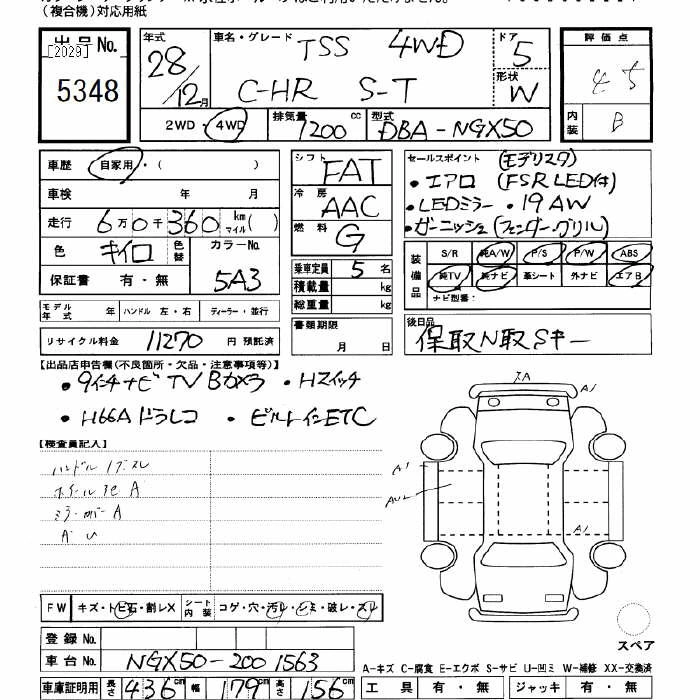 (複合機)対応用紙
出品No.
[2029]
5348
年式 28/12月
車名・グレード TSS 4WD
C-HR S-T
ドア 5
形状 W
評価点
4.5
内装 B
2WD・4WD
排気量 1200 cc
型式 DBA-NGX50
車歴 自家用・( )
車検 年 月
走行 6万0千360 km マイル( )
色 キイロ 色替 カラーNo. 5A3
保証書 有・無
シフト FAT
冷房 AAC
燃料 G
乗車定員 5 名
積載量 kg
総重量 kg
セールスポイント (モデリスタ)
・エアロ (FSR LED付)
・LEDミラー ・19AW
・ガーニッシュ(フェンダー・グリル)
装備品 S/R 純A/W P/S P/W ABS
純TV 純ナビ 革シート 外ナビ エアB
ナビ型番:
モデル年式 年 ハンドル 左・右 ディーラー・並行
リサイクル料金 11270 円 預託済
書類期限 月 日
後日品
保取N取Sキー
【出品店申告欄(不良箇所・欠品・注意事項等)】
・9インチナビTV Bカメラ ・Hスイッチ
・H66A ドラレコ ・ビルトインETC
【検査員記入】
ハンドル
ホイール A
ミラーカバー A
A U
A1
A1
A1
FW キズ・トビ石・割レX シート内装 コゲ・穴・汚レ・シミ・破レ・スレ
登録No.
車台No. NGX50-2001563
車庫証明用 長さ 436cm 幅 179cm 高さ 156cm
スペア
A-キズ C-腐食 E-エクボ S-サビ U-凹ミ W-補修 XX-交換済
工具 有・無 ジャッキ 有・無